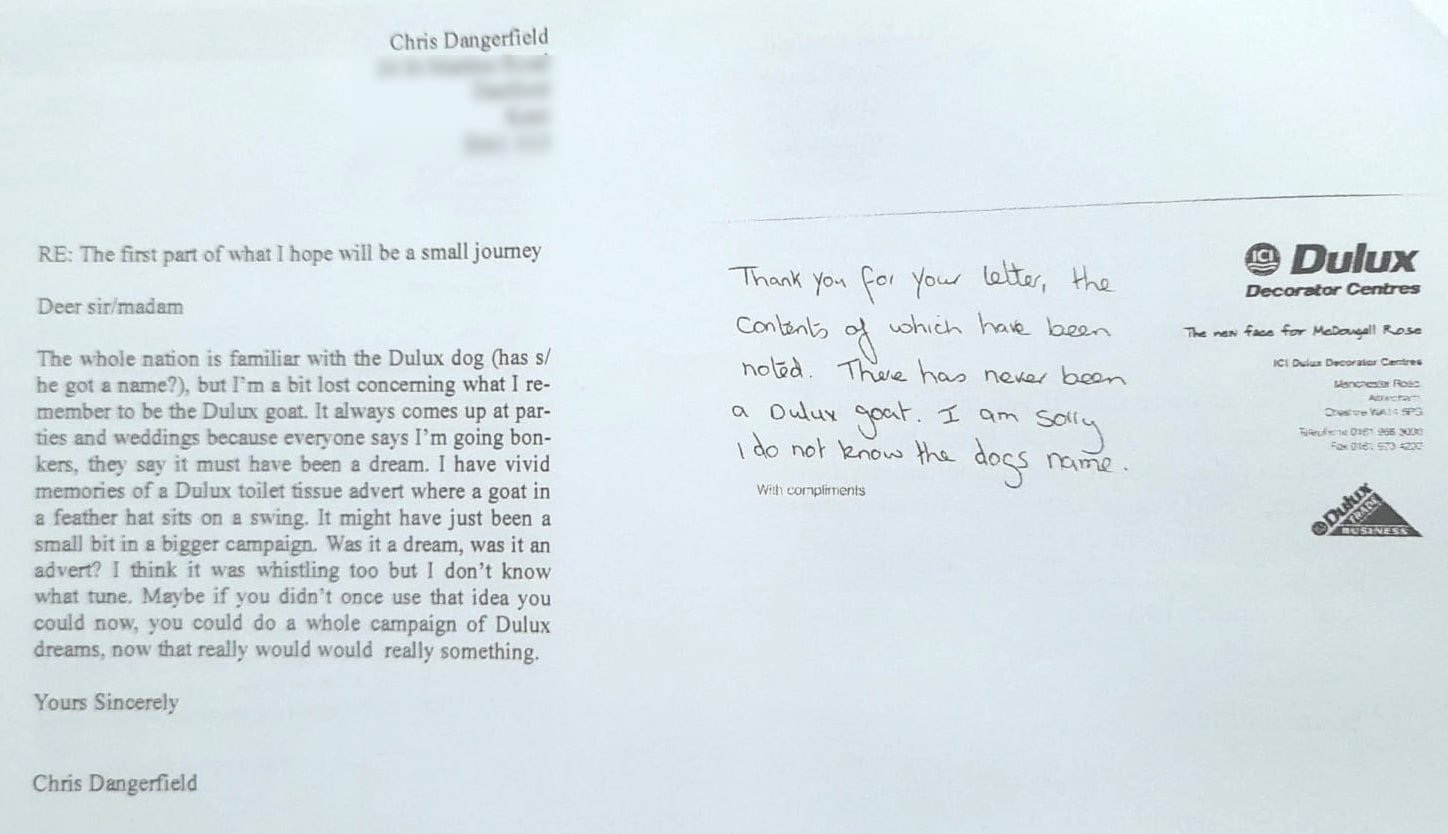 Chris Dangerfield
RE: The first part of what I hope will be a small journey
Deer sir/madam
The whole nation is familiar with the Dulux dog (has s/
he got a name?), but I'm a bit lost concerning what I re-
member to be the Dulux goat. It always comes up at par-
ties and weddings because everyone says I'm going bon-
kers, they say it must have been a dream. I have vivid
memories of a Dulux toilet tissue advert where a goat in
a feather hat sits on a swing. It might have just been a
small bit in a bigger campaign. Was it a dream, was it an
advert? I think it was whistling too but I don't know
what tune. Maybe if you didn't once use that idea you
could now, you could do a whole campaign of Dulux
dreams, now that really would would really something.
Yours Sincerely
Chris Dangerfield
Thank you for your letter, the
contents of which have been
noted. There has never been
a Dulux goat. I am sorry
I do not know the dogs name.
With compliments
ICI Dulux
Decorator Centres
The new face for McDougall Rose
ICI Dulux Decorator Centres
Manchester Road
Telephone 0161
Fax
Dulux
TRADE
BUSINESS